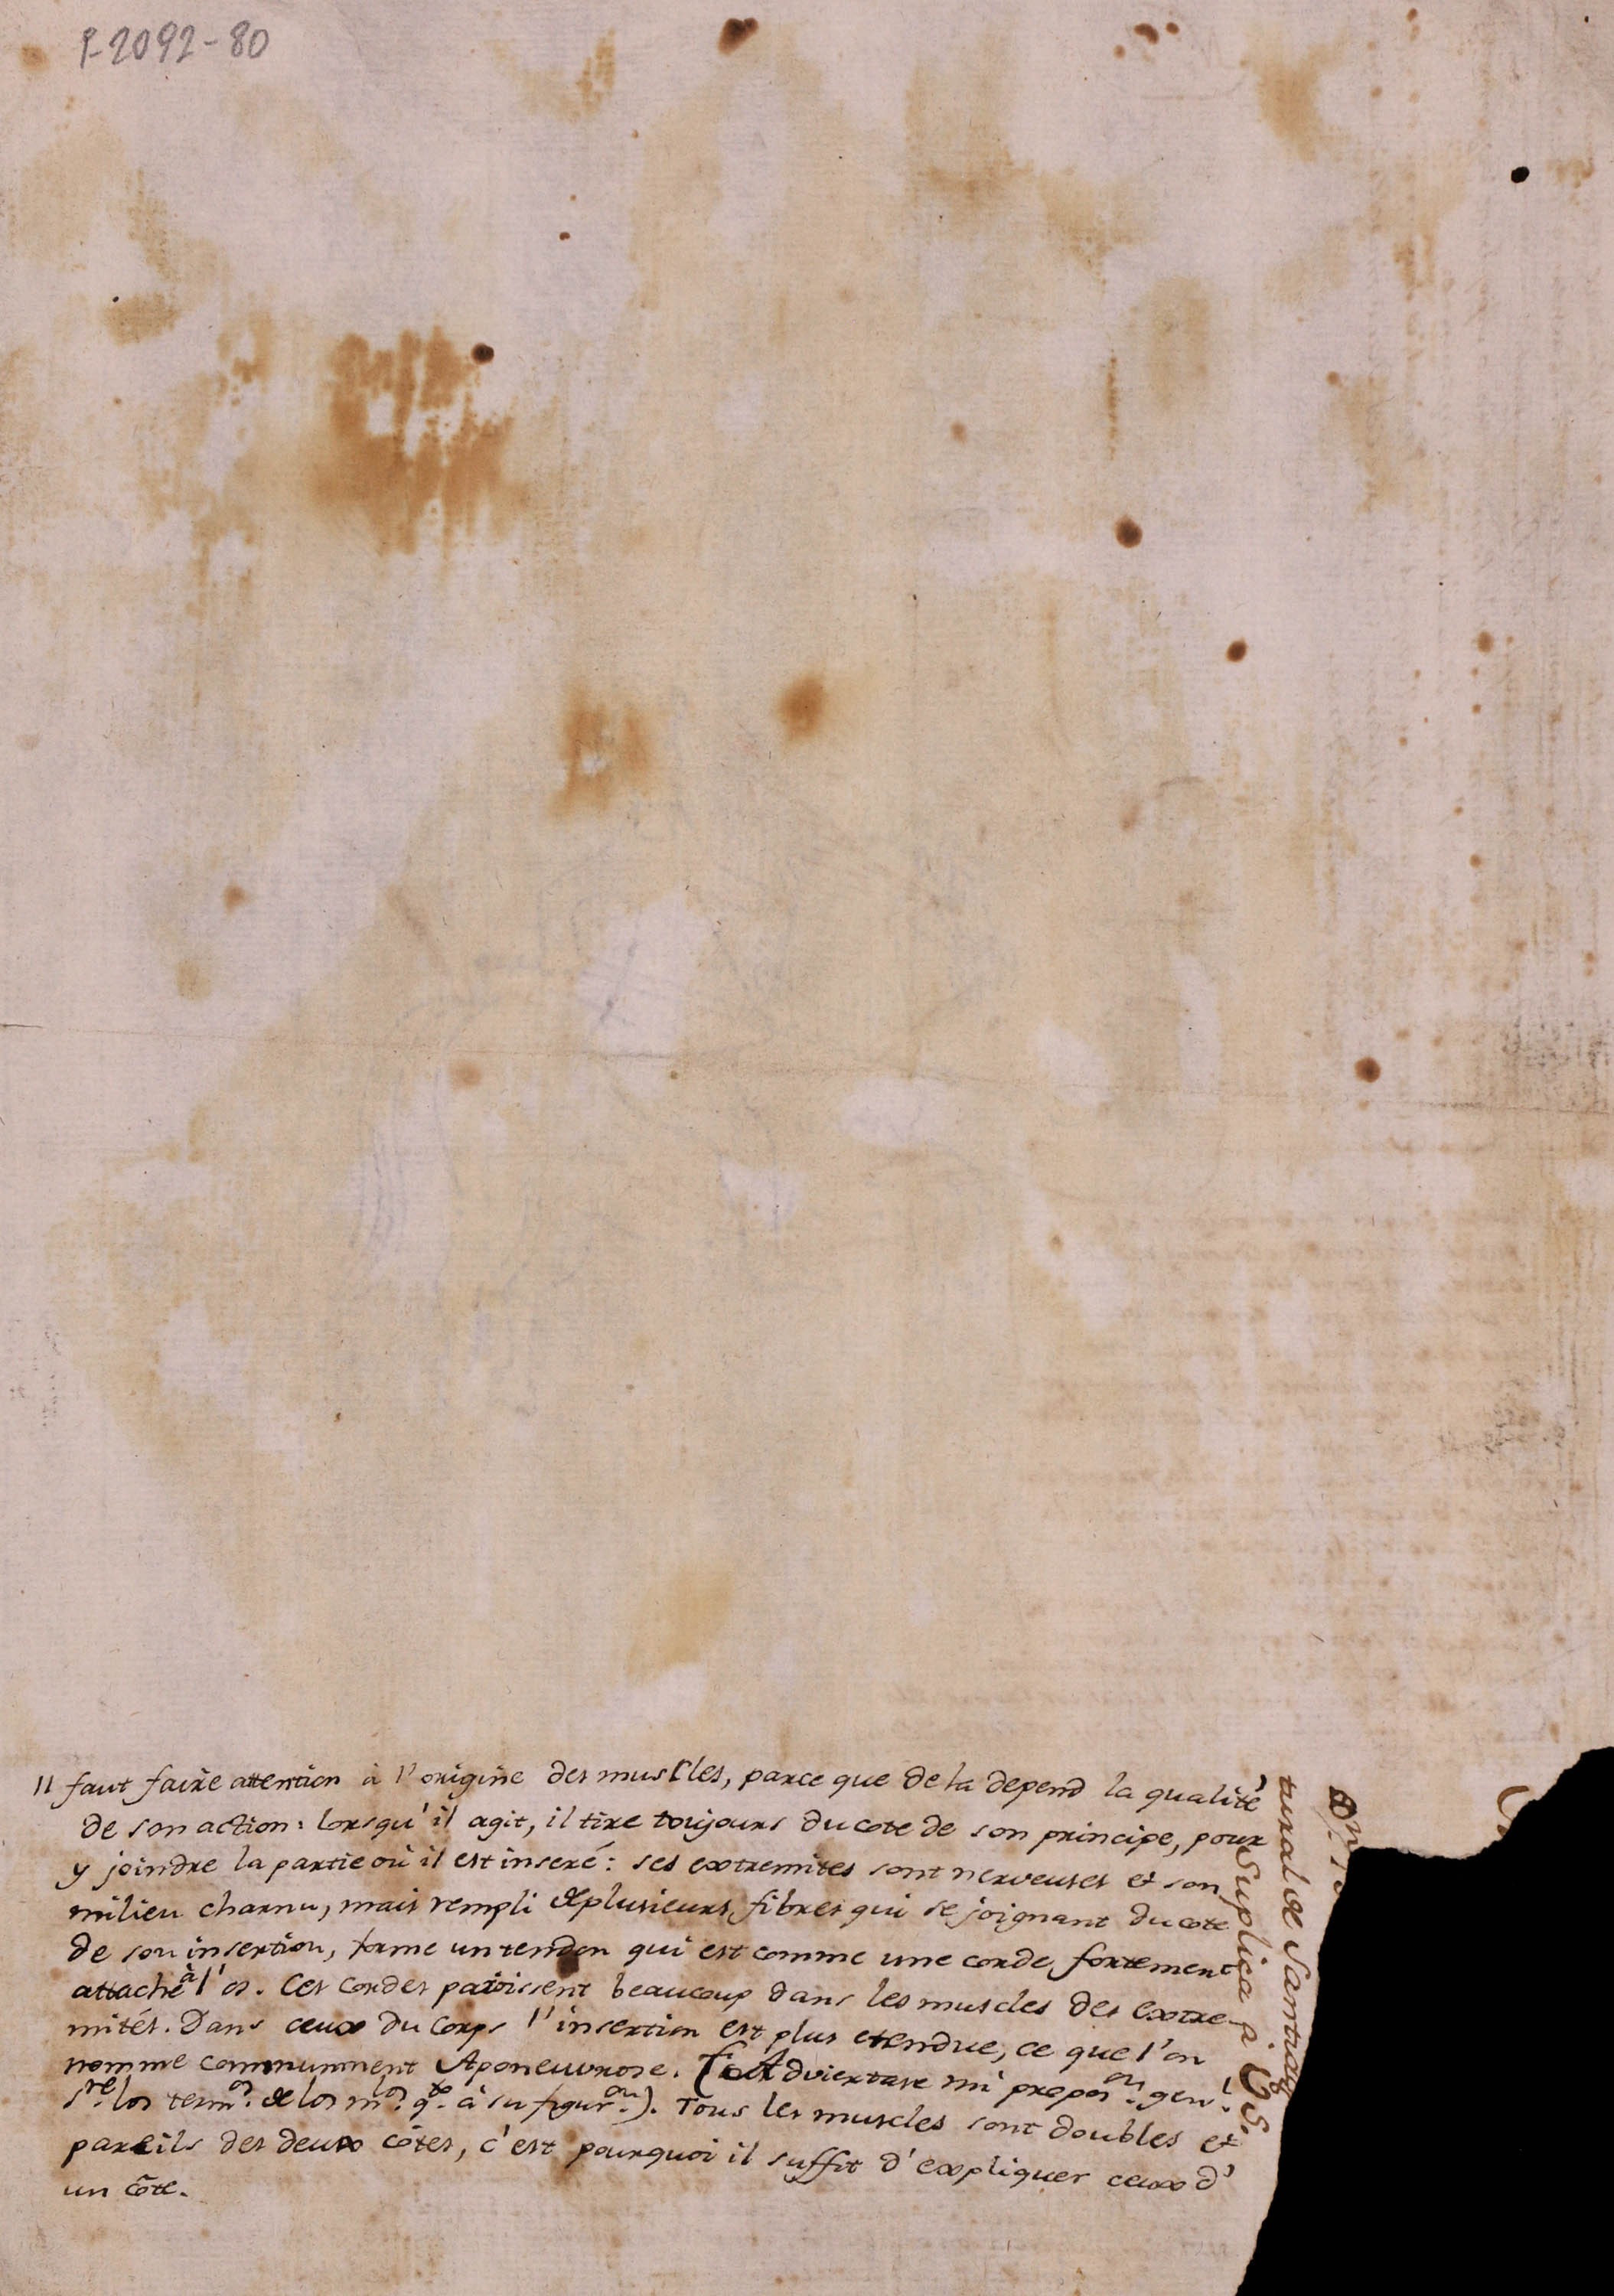 P-2092-80
Il faut faire attention à l'origine des muscles, parce que de la depend la qualité
de son action: lorsqu'il agit, il tire toujours du cote de son principe, pour
y joindre la partie où il est inseré: ses extremites sont nerveuses et son
milieu charnu, mais rempli de plusieurs fibres qui se joignant du cote
de son insertion, forme un tendon qui est comme une corde fortement
attaché à l'os. Ces cordes paroissent beaucoup dans les muscles des extre-
mités. Dans ceux du corps l'insertion est plus etendue, ce que l'on
nomme communment Aponeuvrose. (Adviertase mi propos.on gen.l
s.re los term.os de los m.los q.to à su figur.on). Tous les muscles sont doubles et
pareils des deux côtes, c'est pourquoi il suffit d'expliquer ceux d'
un côte.
Suplica a VS.
tural de Santiag
Dn